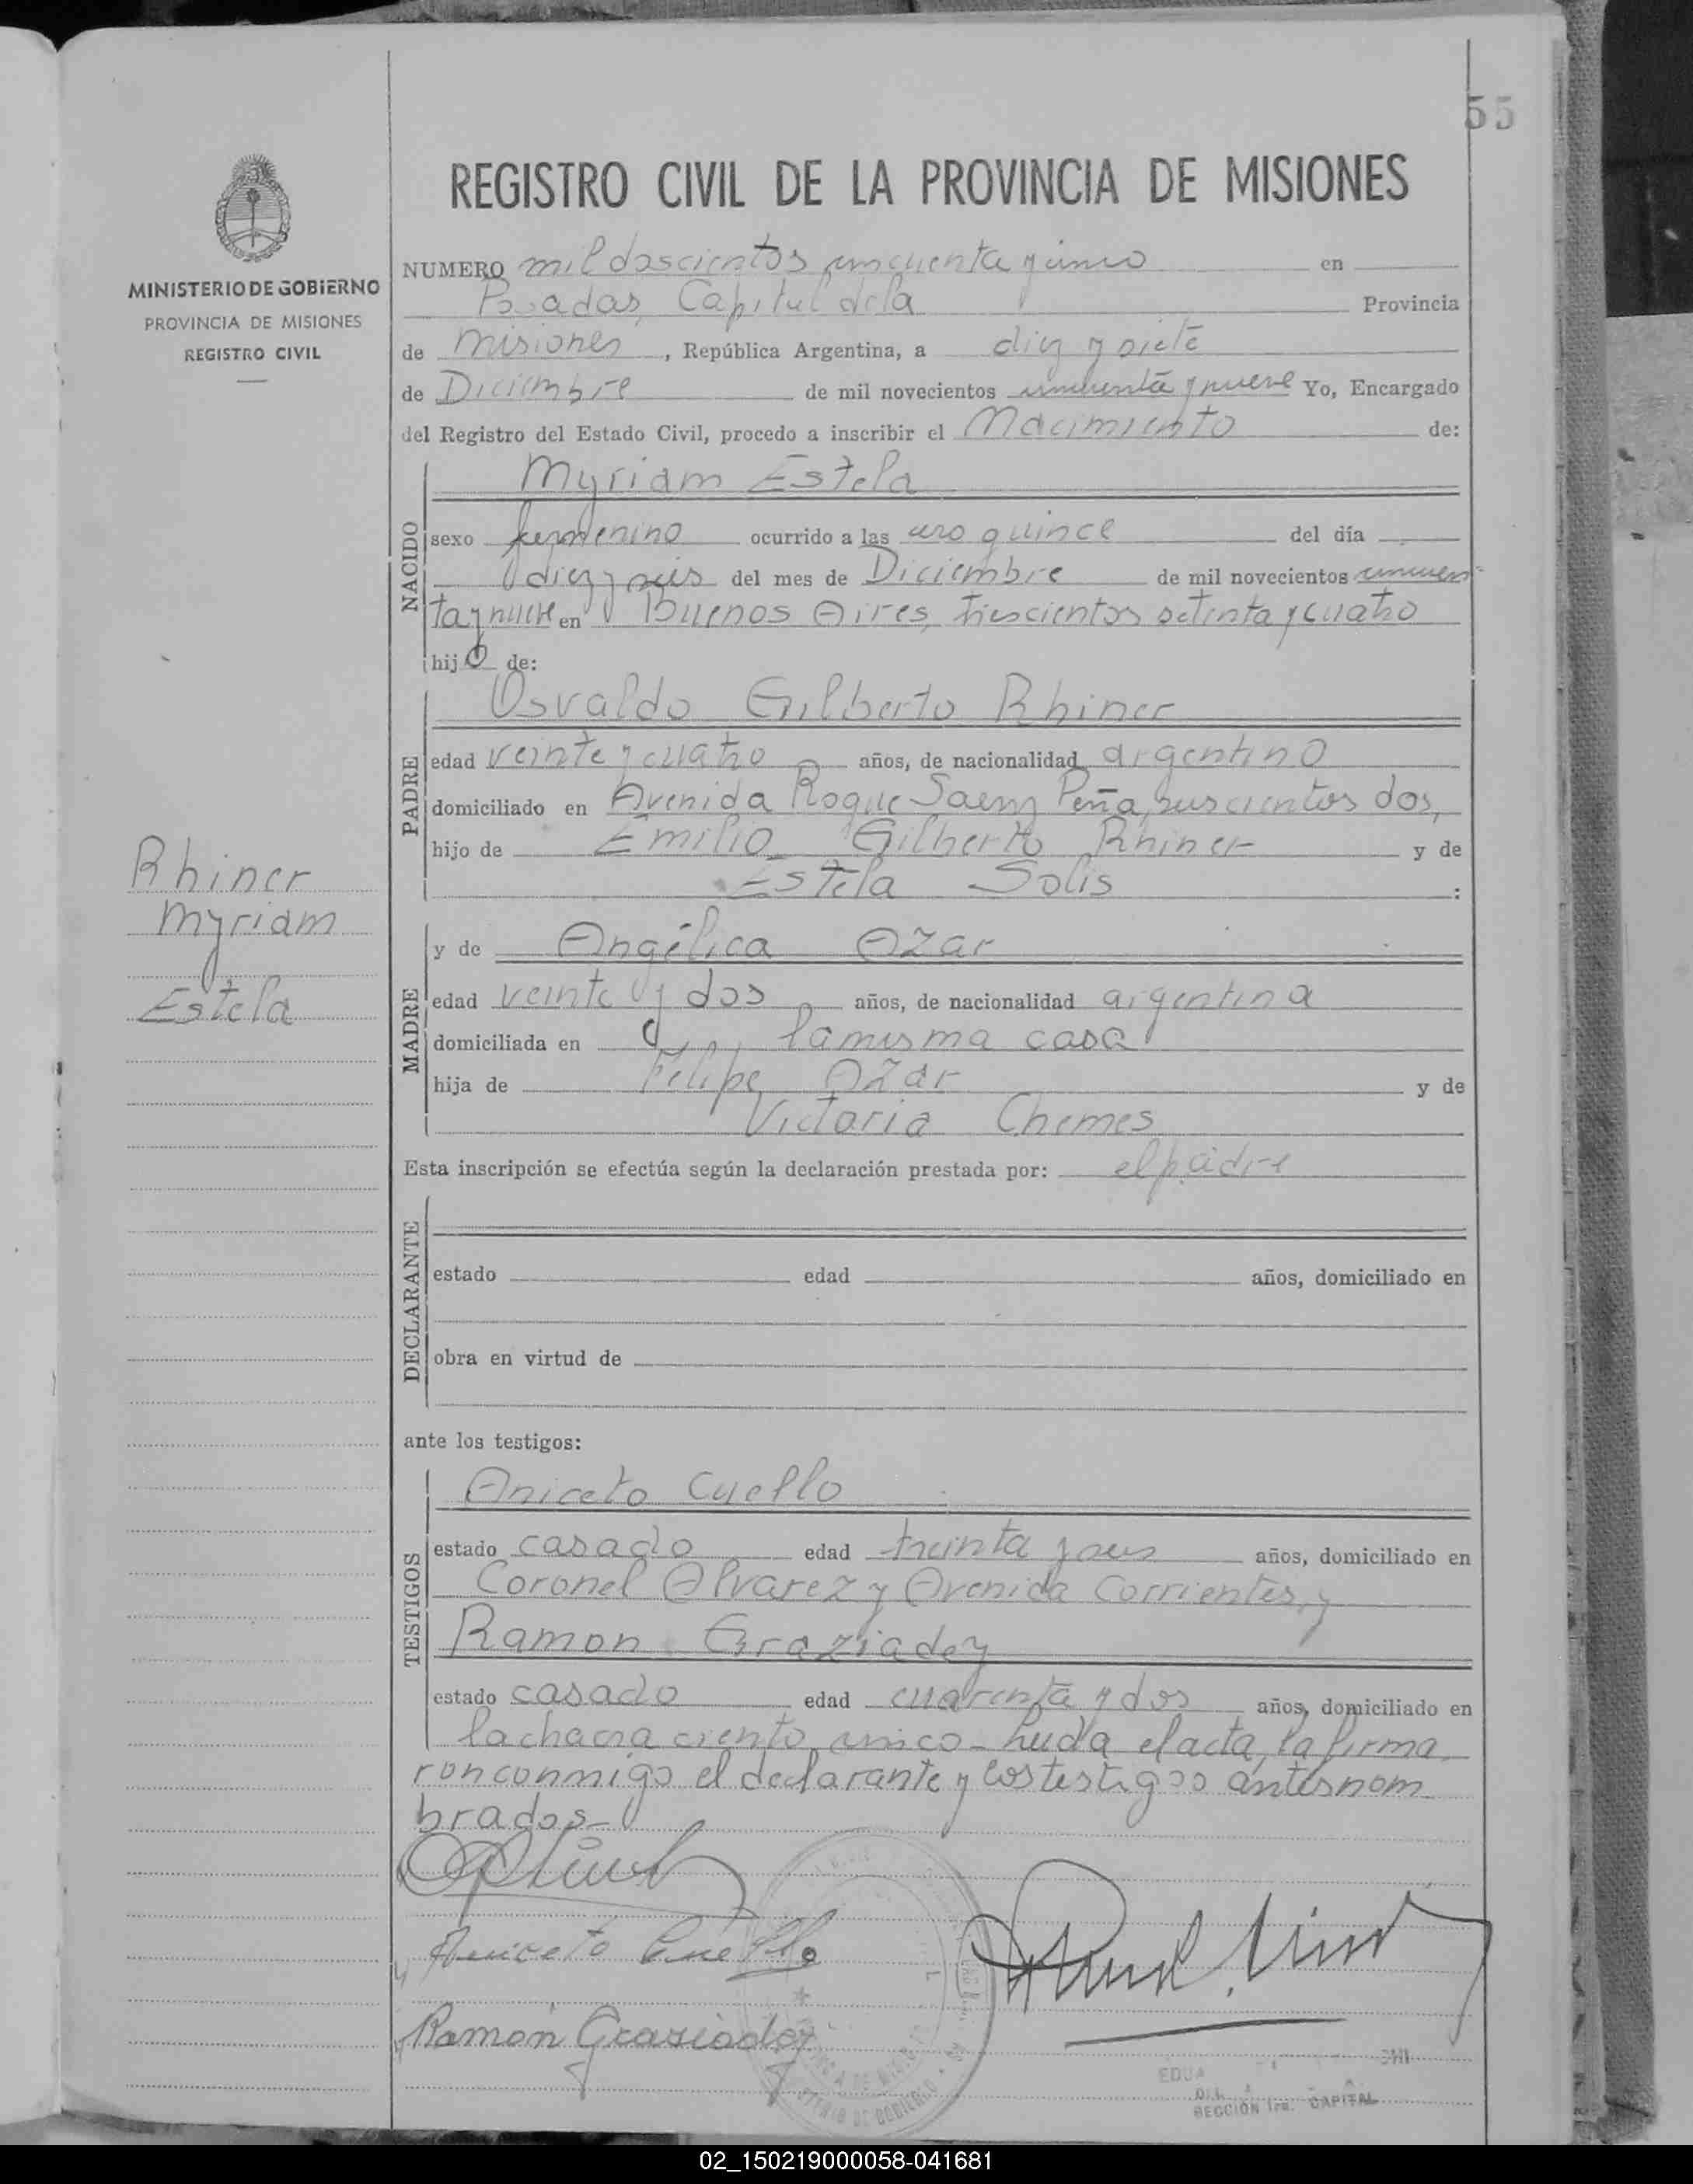 55
REGISTRO CIVIL DE LA PROVINCIA DE MISIONES
MINISTERIO DE GOBIERNO
PROVINCIA DE MISIONES
REGISTRO CIVIL
NUMERO mil doscientos cincuenta y cinco en
Posadas, Capital de la Provincia
de Misiones, República Argentina, a diez y siete
de Diciembre de mil novecientos cincuenta y nueve Yo, Encargado
del Registro del Estado Civil, procedo a inscribir el Nacimiento de:
NACIDO
Myriam Estela
sexo femenino ocurrido a las uno quince del día
diez y seis del mes de Diciembre de mil novecientos cincuen-
ta y nueve en Buenos Aires, trescientos setenta y cuatro
hij de:
PADRE
Osvaldo Gilberto Rhiner
edad veinte y cuatro años, de nacionalidad argentino
domiciliado en Avenida Roque Saenz Peña, seiscientos dos,
hijo de Emilio Gilberto Rhiner y de
Estela Solis :
Rhiner
Myriam
Estela
MADRE
y de Angélica Azar
edad veinte y dos años, de nacionalidad argentina
domiciliada en la misma casa
hija de Felipe Azar y de
Victoria Chemes
Esta inscripción se efectúa según la declaración prestada por: el padre
DECLARANTE
estado edad años, domiciliado en
obra en virtud de
ante los testigos:
TESTIGOS
Aniceto Cuello
estado casado edad treinta y seis años, domiciliado en
Coronel Alvarez y Avenida Corrientes, y
Ramon Graziadey
estado casado edad cuarenta y dos años, domiciliado en
la chacra ciento cinco - Leida el acta, la firma
ron conmigo el declarante y los testigos antes nom
brados -
Aniceto Cuello
Ramón Graziadey
SECCIÓN 1ra. CAPITAL
02_150219000058-041681